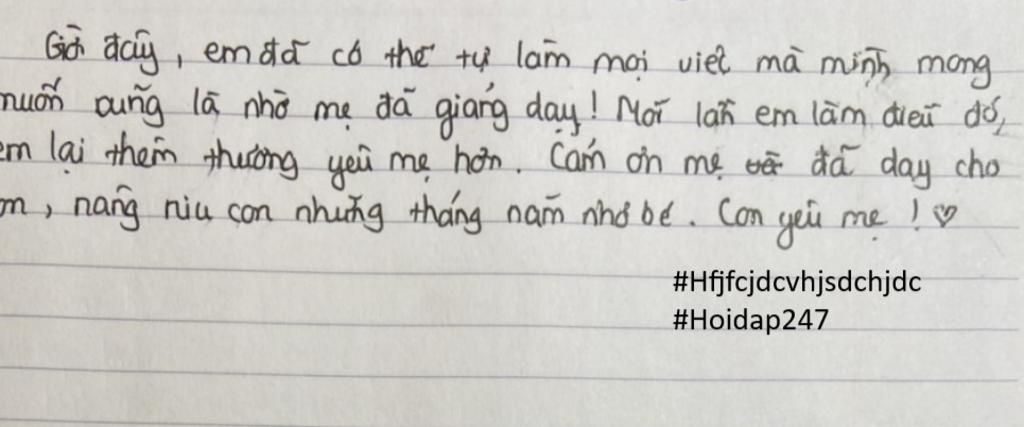 Giờ đây, em đã có thể tự làm mọi việc mà mình mong
muốn cũng là nhờ mẹ đã giảng dạy! Mỗi lần em làm điều đó,
em lại thêm thương yêu mẹ hơn. Cảm ơn mẹ đã dạy cho
, nâng niu con những tháng năm nhỏ bé. Con yêu mẹ! ♡
#Hfjfcjdcvhjsdchjdc
#Hoidap247